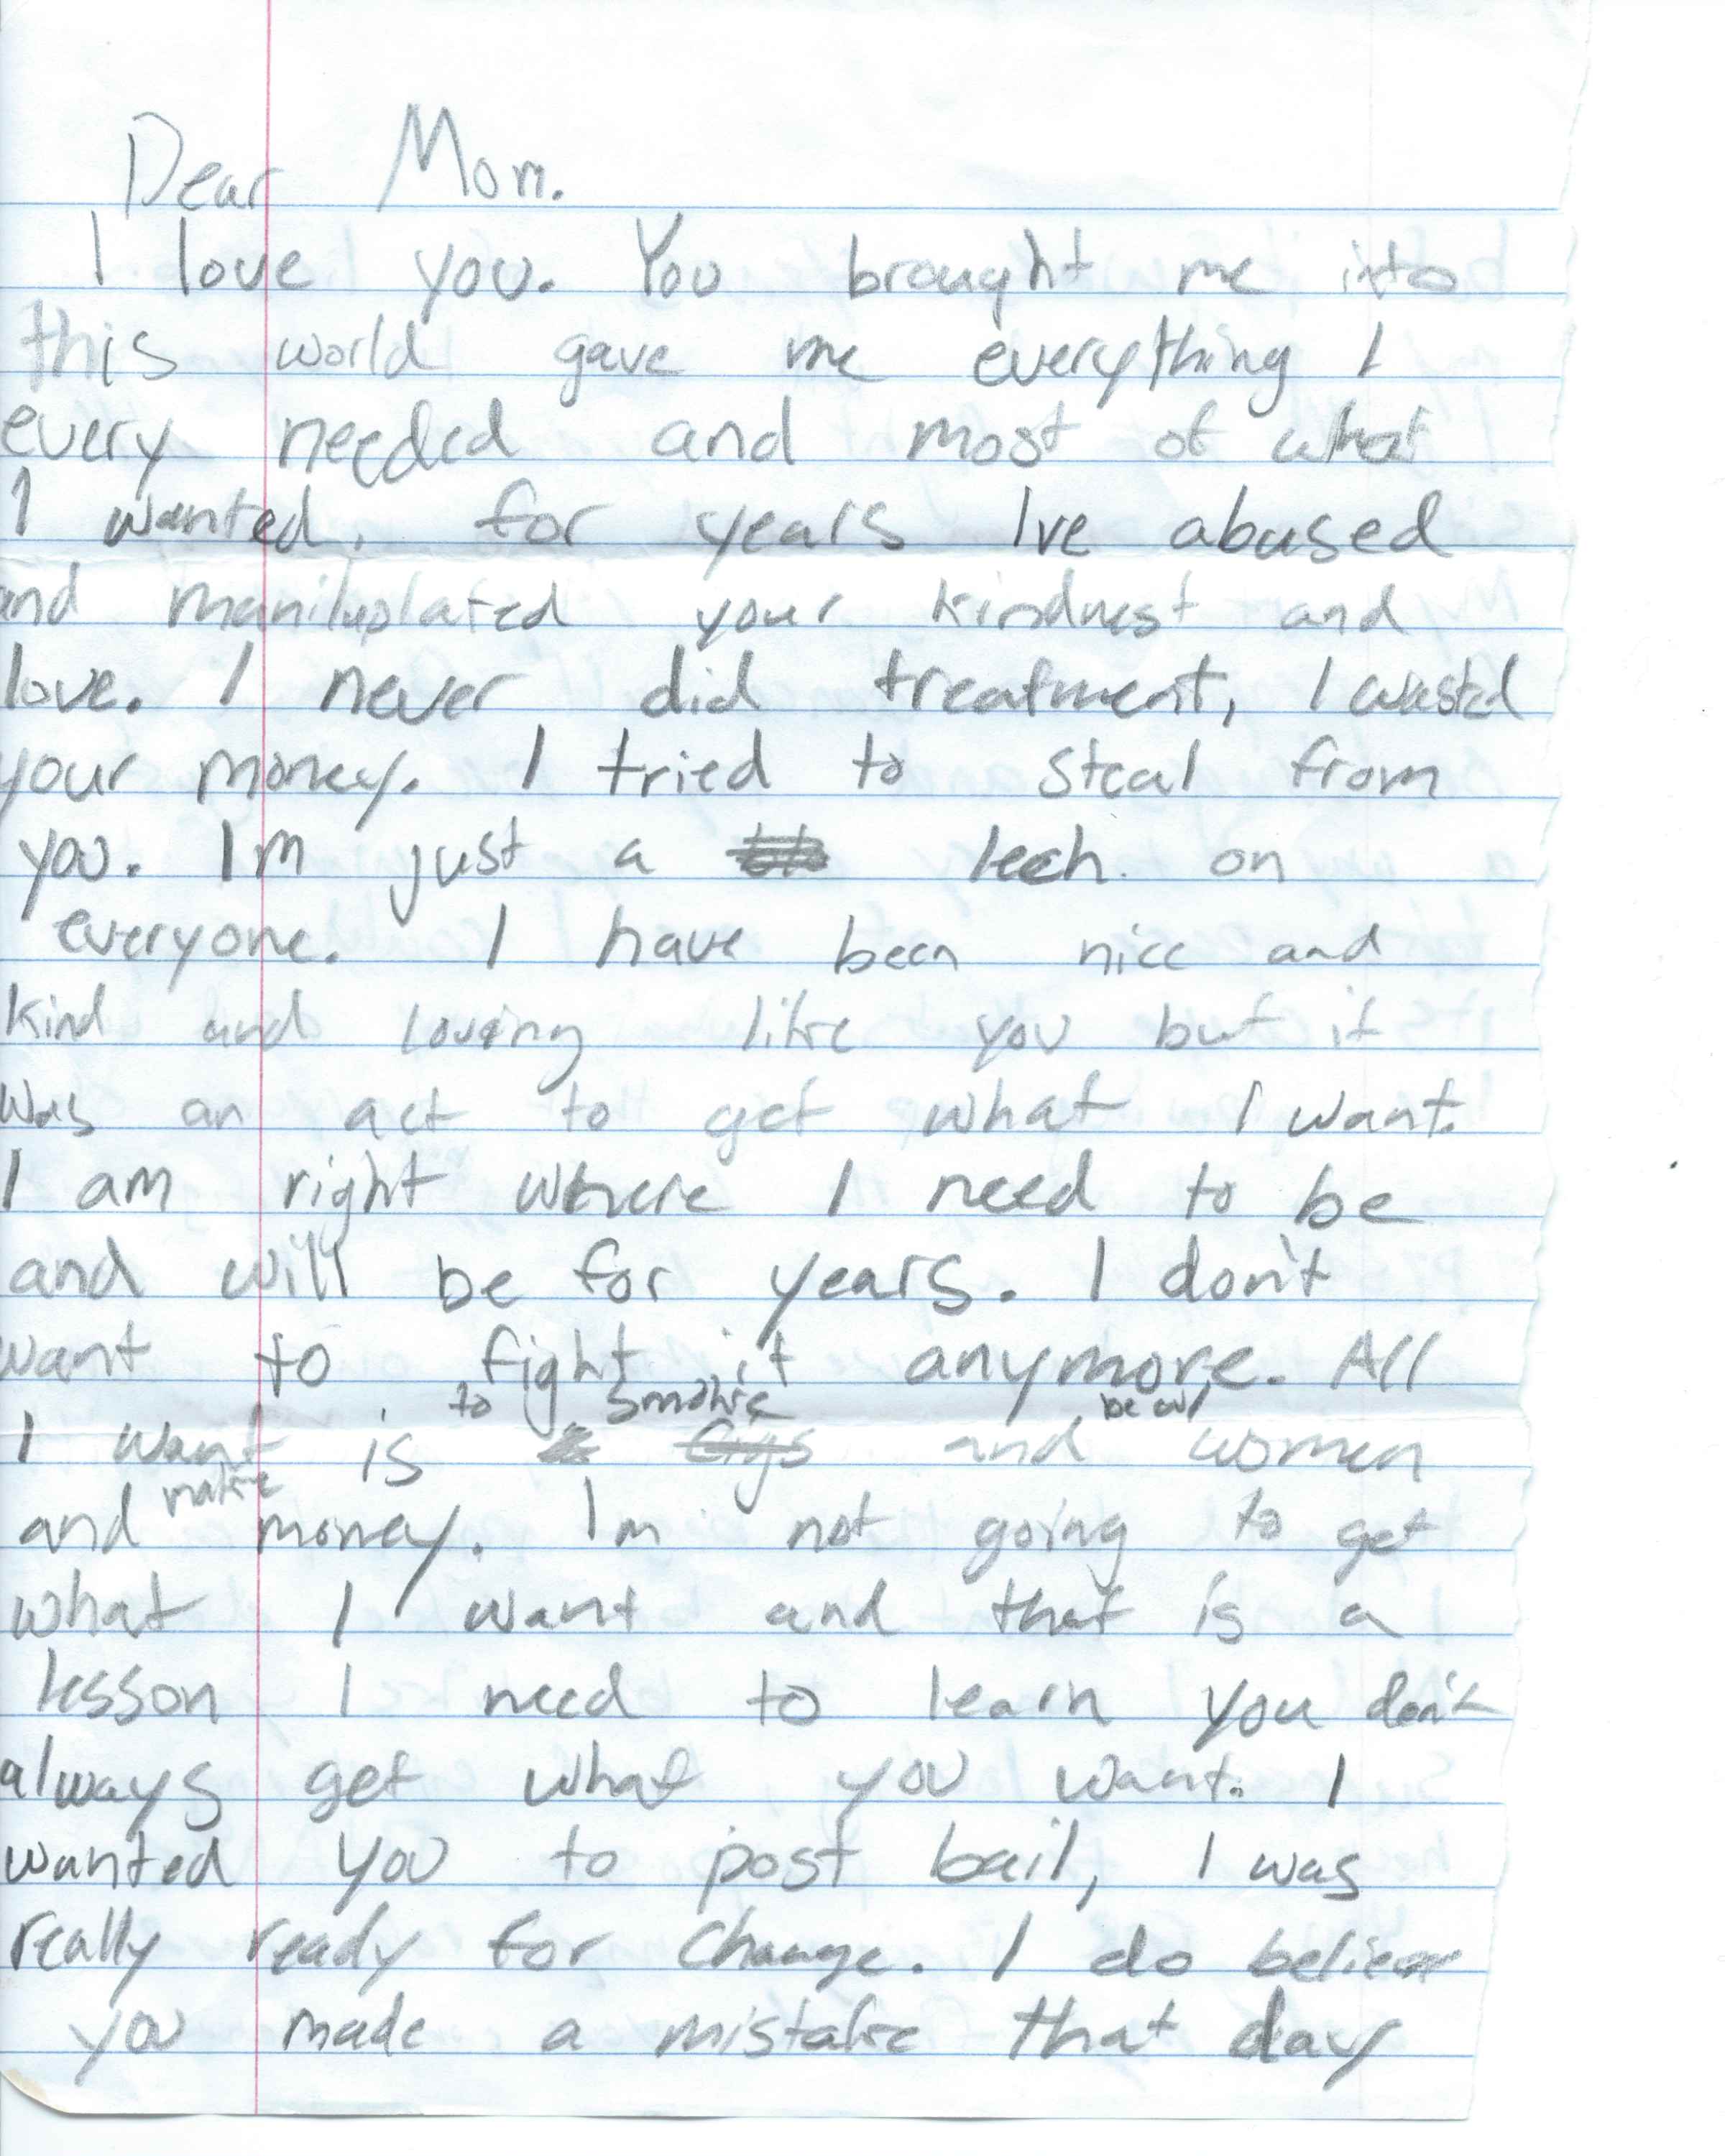 Dear Mom.
I love you. You brought me into
this world gave me everything I
every needed and most of what
I wanted. for years Ive abused
and maniluplated your kindnest and
love. I never did treatment, I wasted
your money. I tried to steal from
you. Im just a leech on
everyone. I have been nice and
kind and loving like you but it
was an act to get what I want.
I am right where I need to be
and will be for years. I don't
want to fight it anymore. All
I want is to smoke and be w/ women
and make money. Im not going to get
what I want and that is a
lesson I need to learn you don't
always get what you want. I
wanted you to post bail, I was
really ready for change. I do believe
you made a mistake that day